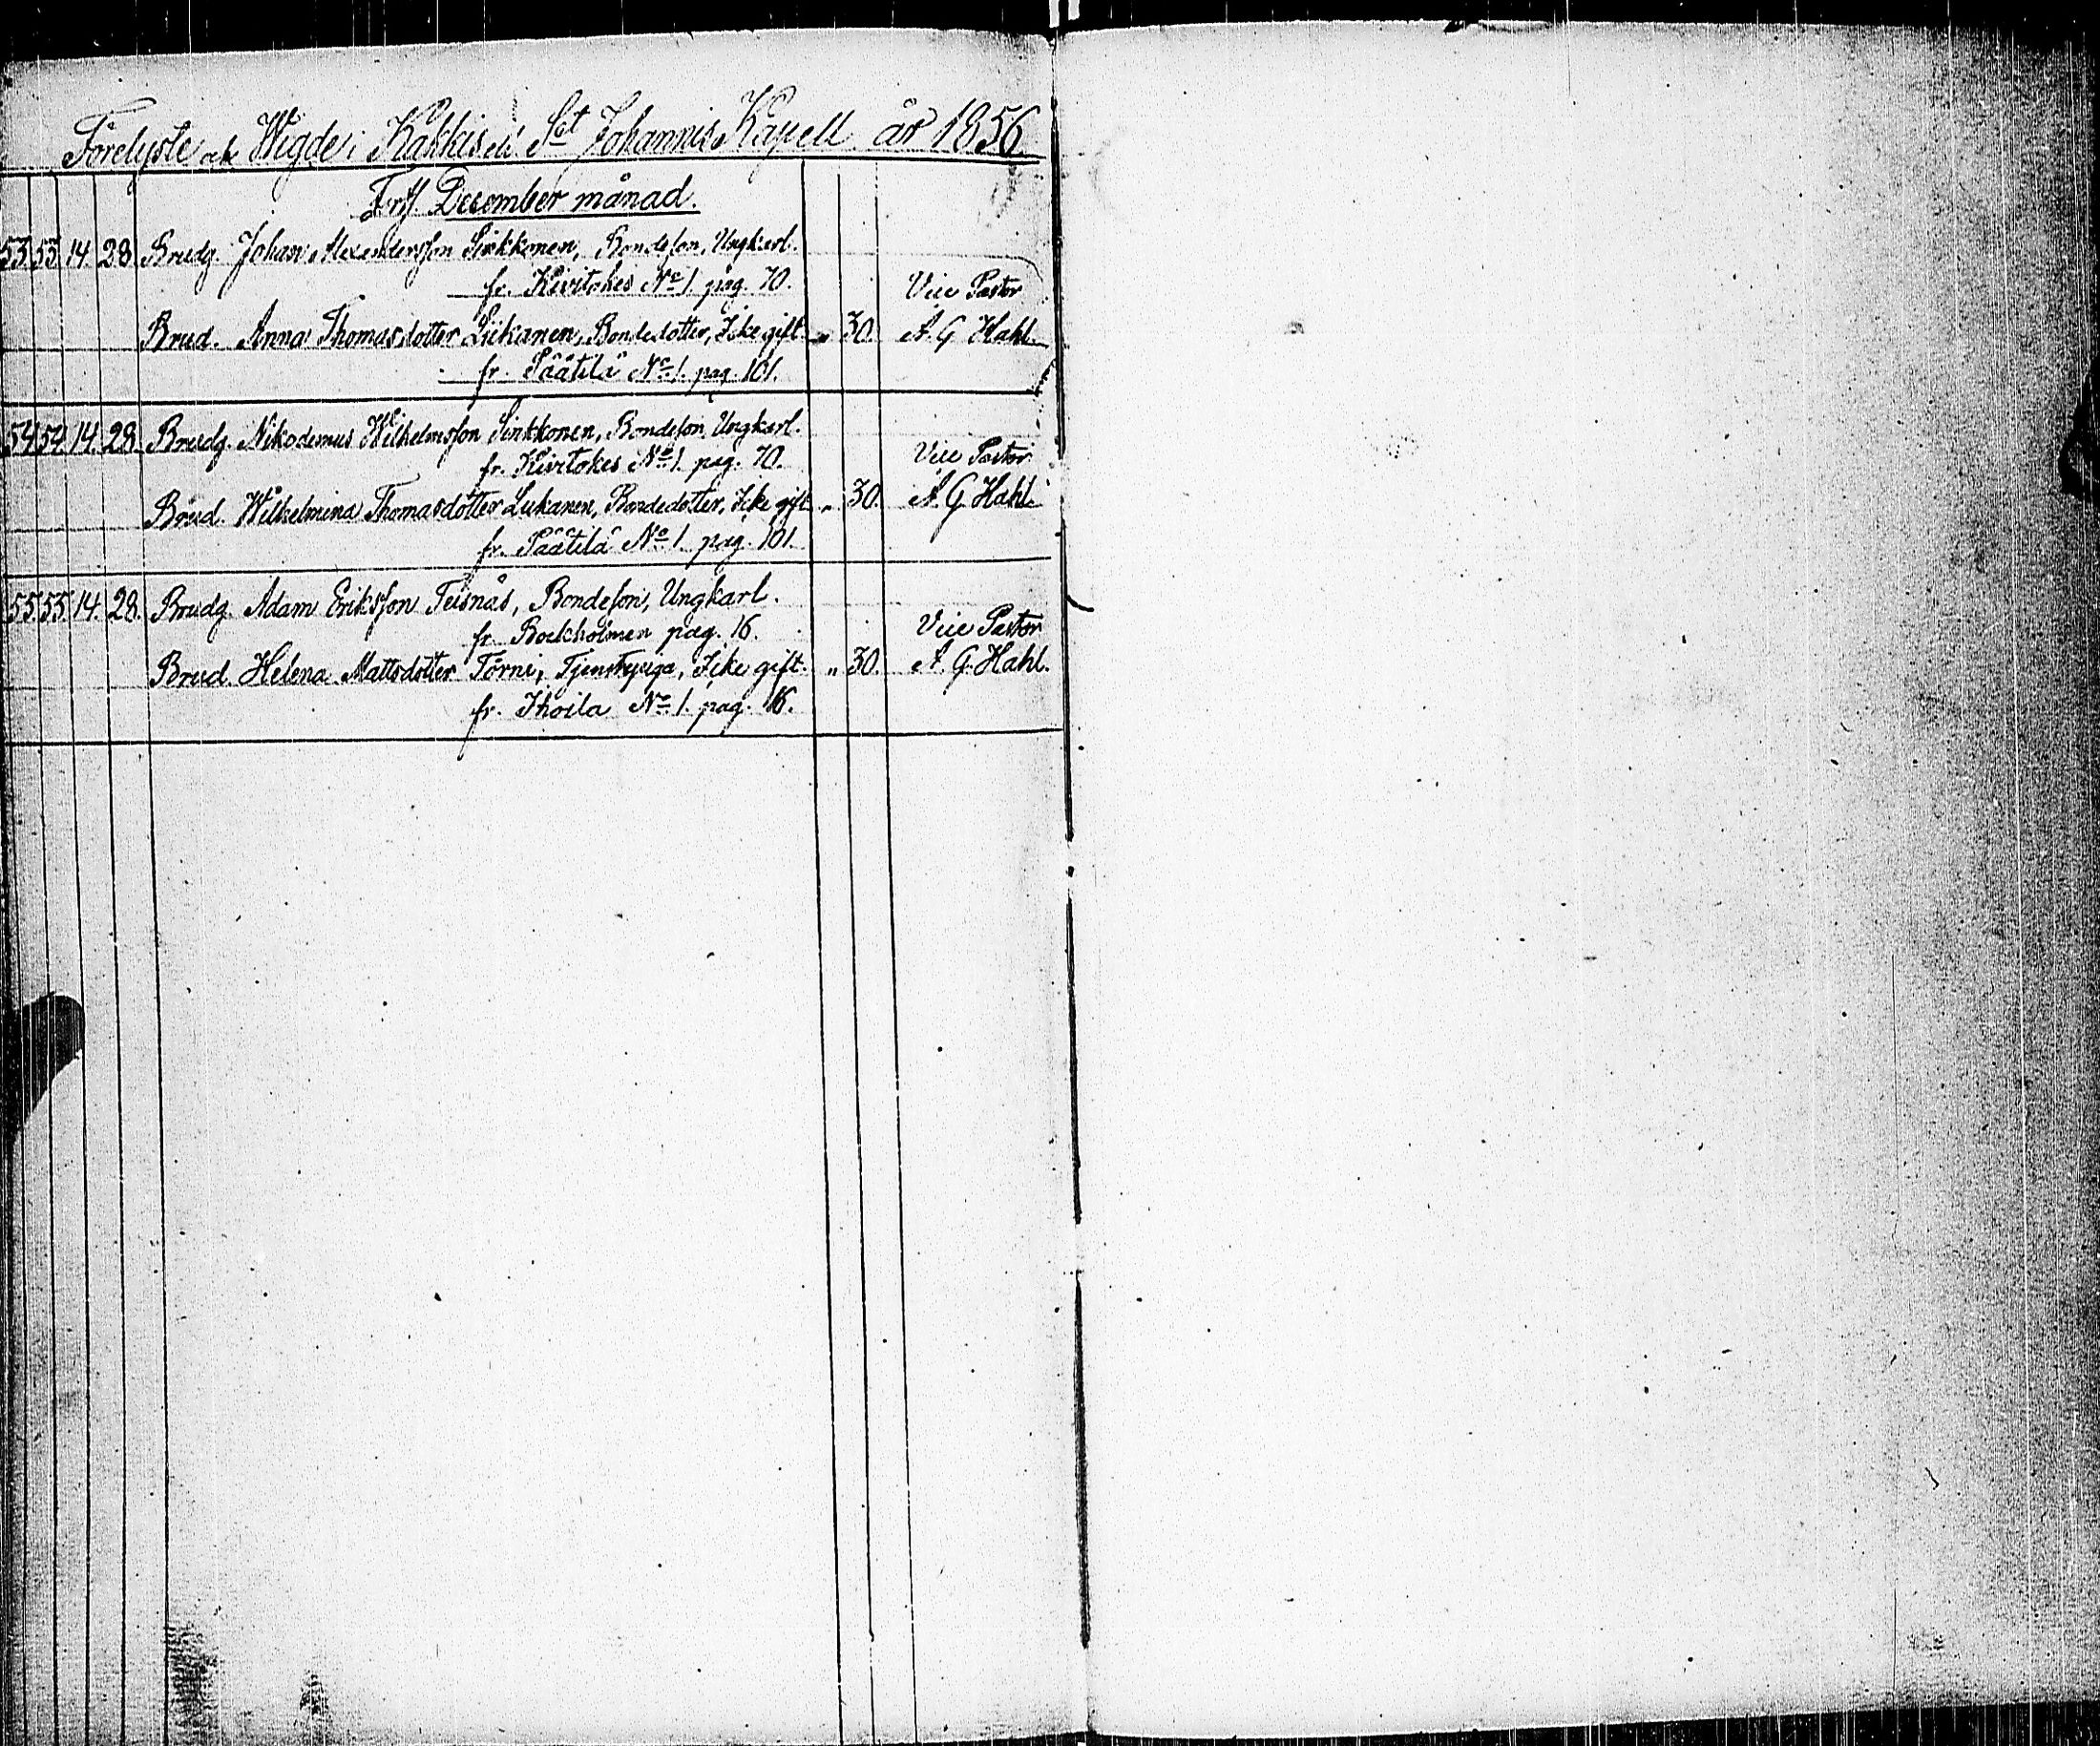 Förelyste och Wigde i Kakkis och Sct Johannis Kapell år 1856.
Forts. December månad.
53. 53. 14. 28. Brudg. Johan Alexandersson Sinkkonen, Bondeson, Ungkarl.
fr. Kivitokes No 1. pag. 70. Vice Pastor
Brud. Anna Thomasdotter Liikanen, Bondedotter, Icke gift. „ 30. A. G. Hahl.
fr. Päätilä No 1. pag. 101.
54. 54. 14. 28. Brudg. Nikodemus Wilhelmsson Sinkkonen, Bondeson, Ungkarl.
fr. Kivitokes No 1. pag. 70. Vice Pastor
Brud. Wilhelmina Thomasdotter Liikanen, Bondedotter, Icke gift „ 30. A. G. Hahl.
fr. Päätilä No 1. pag. 101.
55. 55. 14. 28. Brudg. Adam Eriksson Teisnäs, Bondeson, Ungkarl.
fr. Bockholmen pag. 16. Vice Pastor
Brud. Helena Mattsdotter Törni, Tjenstepiga, Icke gift. „ 30. A. G. Hahl.
fr. Ihoila No 1. pag. 16.